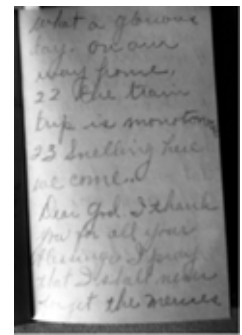 what a glorious
day. on our
way home,
22 the train
trip is monotonous
23 Snelling here
we come..
Dear God I thank
you for all your
blessings I pray
that I shall never
forget the